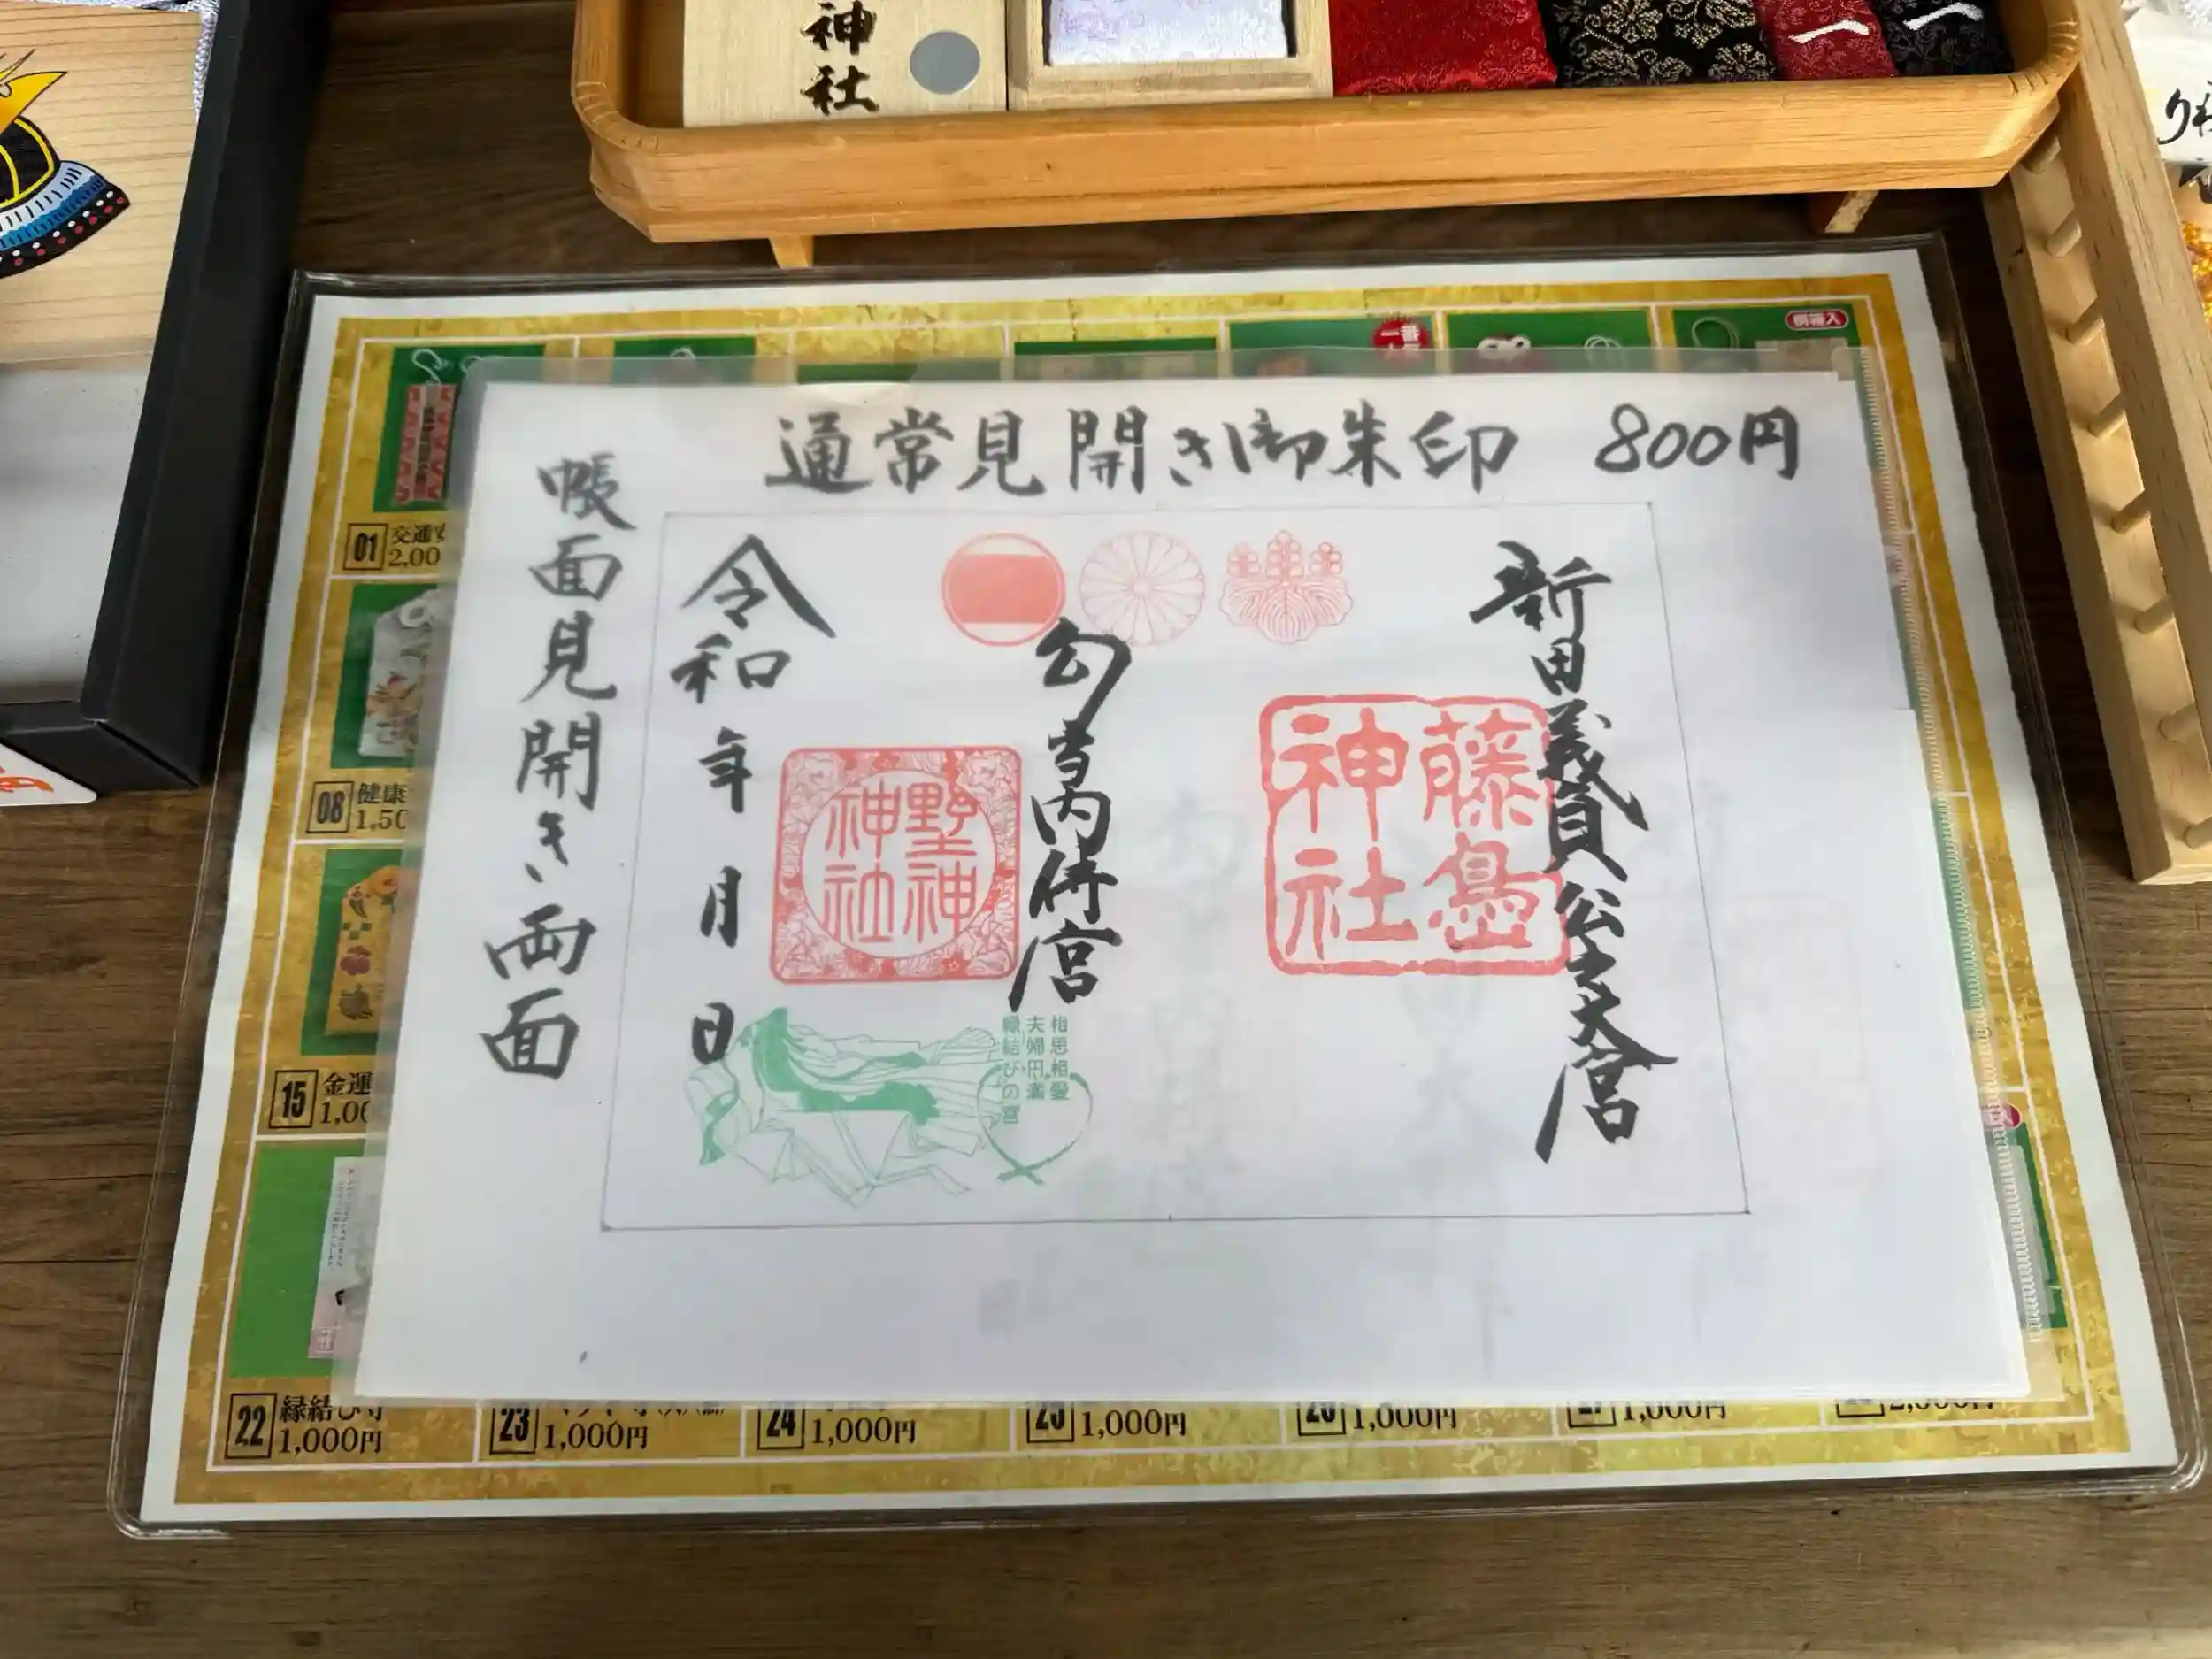 神社
通常見開き御朱印 800円
新田義貞公之大宮
藤島神社
勾当内侍宮
野神神社
相思相愛
夫婦円満
縁結びの宮
令和 年 月 日
帳面見開き両面
一番
個箱入
01 交通
2,00
08 健康
1,50
15 金運
1,00
22 縁結び守
1,000円
23
1,000円
24
1,000円
25
1,000円
26
1,000円
27
1,000円
2,000円